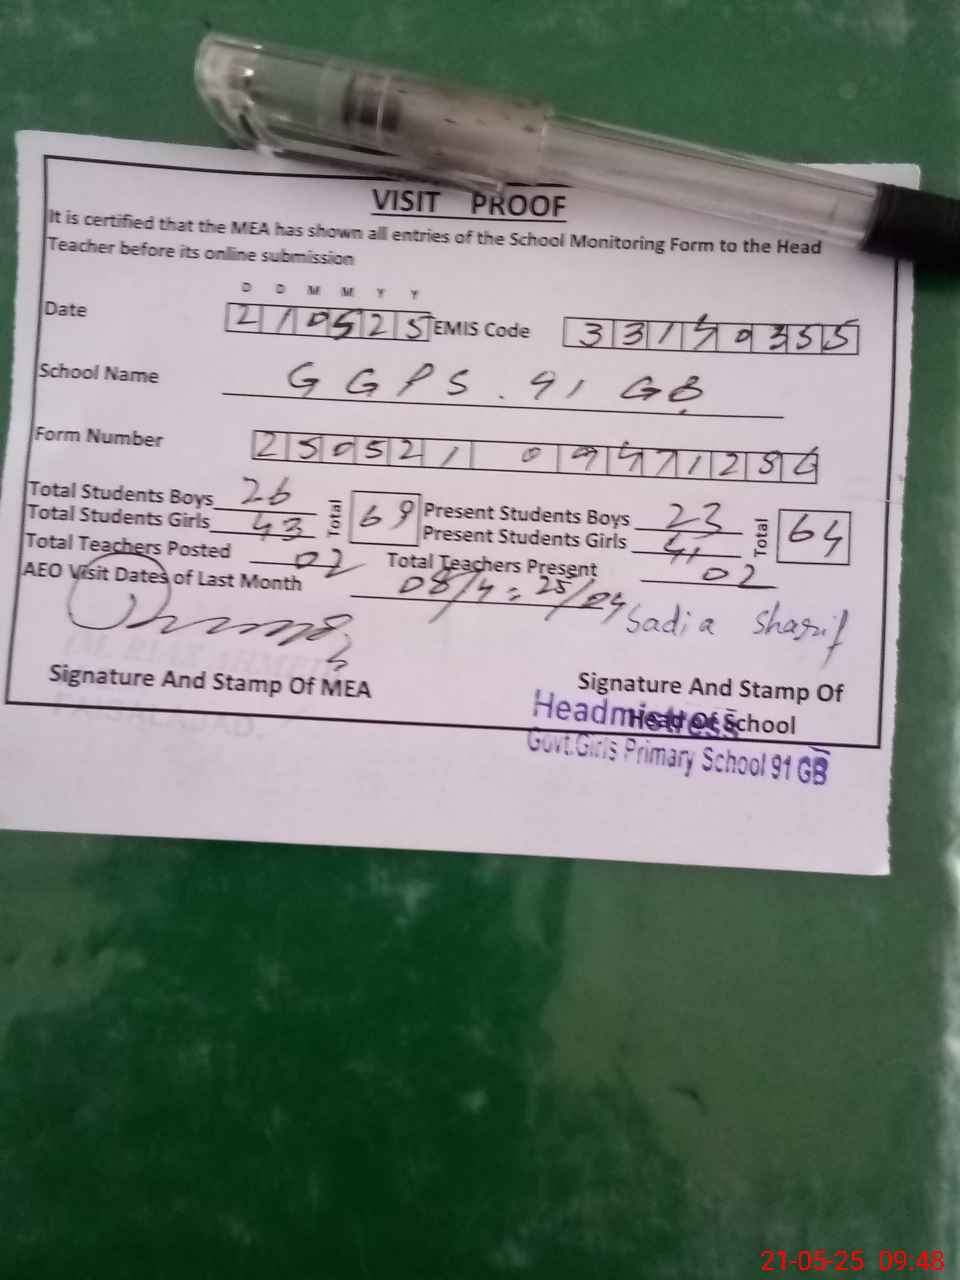 VISIT PROOF
It is certified that the MEA has shown all entries of the School Monitoring Form to the Head
Teacher before its online submission
D D M M Y Y
Date 210525 EMIS Code 33140355
School Name GGPS. 91 GB
Form Number 250521 09471256
Total Students Boys 26 Total 69 Present Students Boys 23 Total 64
Total Students Girls 43 Present Students Girls 41
Total Teachers Posted 02 Total Teachers Present 02
AEO Visit Dates of Last Month 08/4 = 25/04
Sadia Sharif
Signature And Stamp Of MEA Signature And Stamp Of
Head Of School
Headmistress
Govt.Girls Primary School 91 GB
21-05-25 09:48